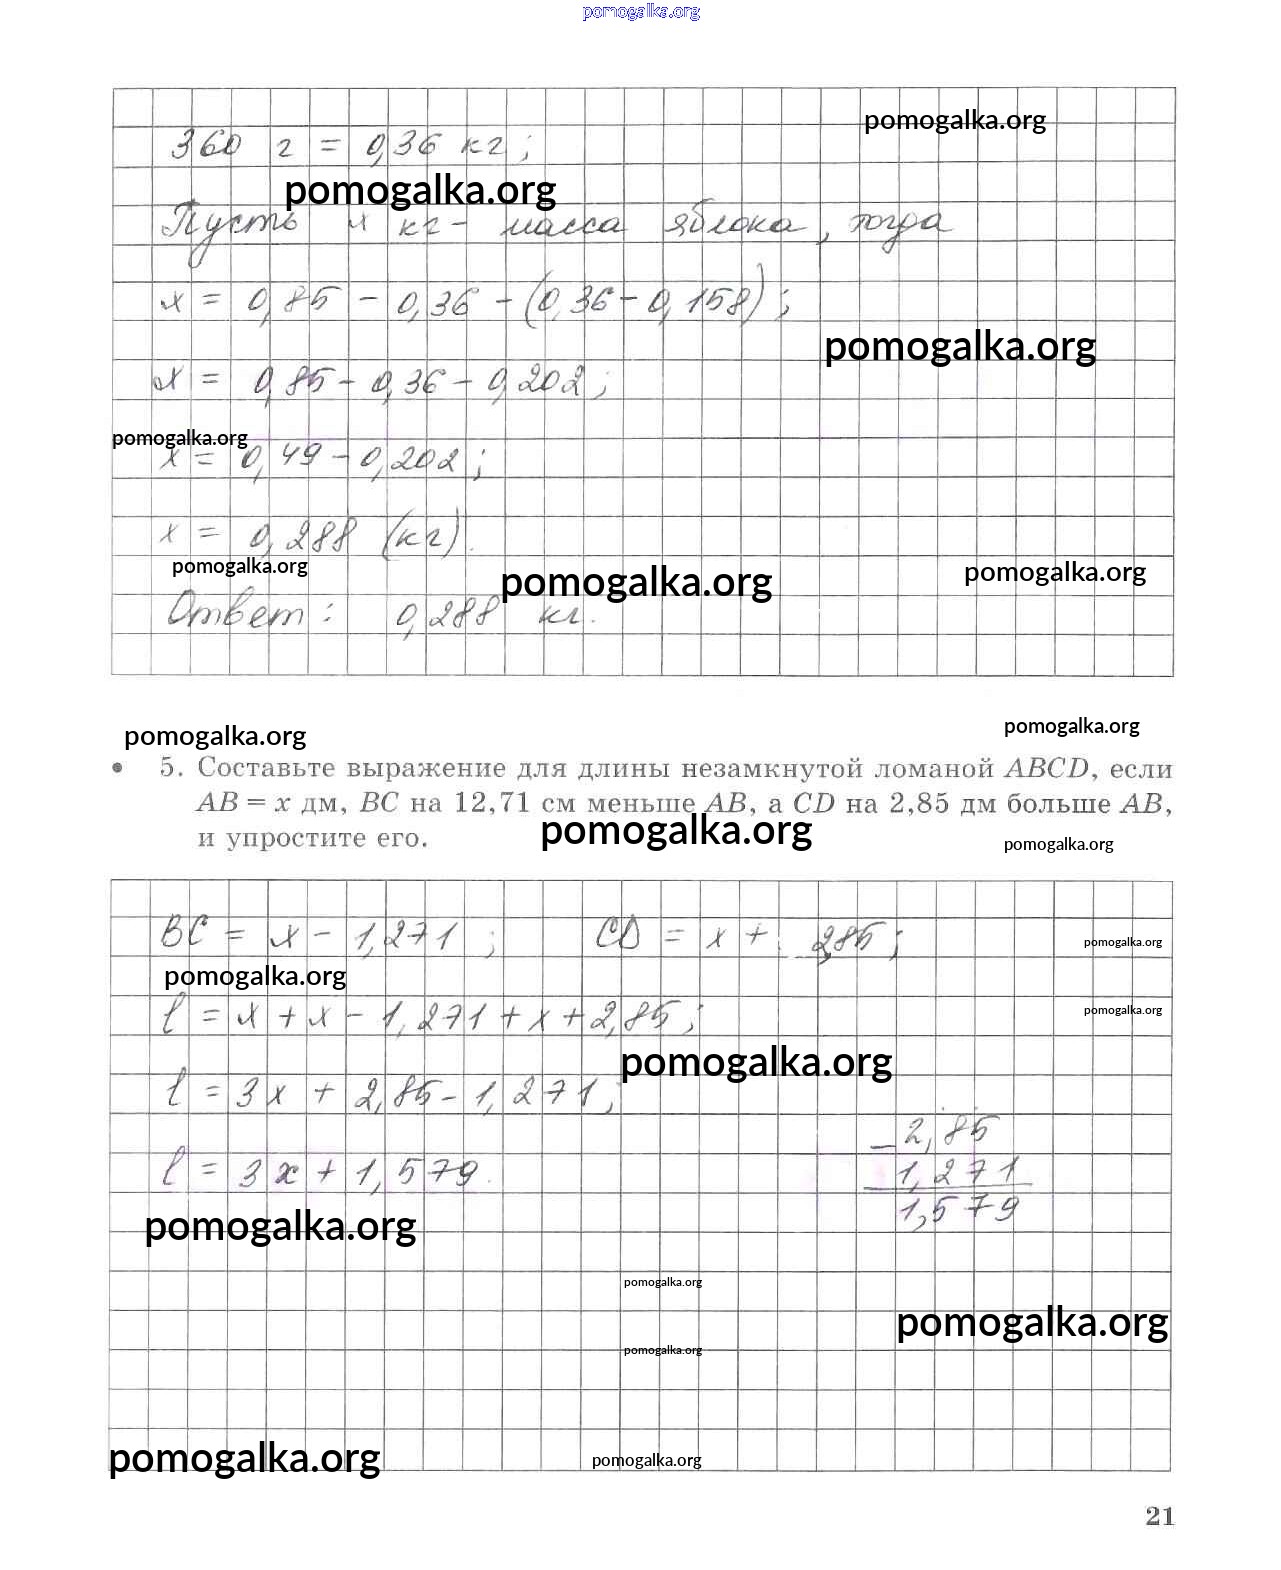 pomogalka.org
pomogalka.org
360 г = 0,36 кг;
pomogalka.org
Пусть x кг - масса яблока, тогда
x = 0,85 - 0,36 - (0,36 - 0,158);
pomogalka.org
x = 0,85 - 0,36 - 0,202;
pomogalka.org
x = 0,49 - 0,202;
x = 0,288 (кг).
pomogalka.org pomogalka.org pomogalka.org
Ответ: 0,288 кг.
pomogalka.org pomogalka.org
• 5. Составьте выражение для длины незамкнутой ломаной ABCD, если
AB = x дм, BC на 12,71 см меньше AB, а CD на 2,85 дм больше AB,
и упростите его.
pomogalka.org pomogalka.org
BC = x - 1,271; CD = x + 2,85;
pomogalka.org
pomogalka.org
l = x + x - 1,271 + x + 2,85;
pomogalka.org
pomogalka.org
l = 3x + 2,85 - 1,271;
l = 3x + 1,579.
- 2,85
1,271
1,579
pomogalka.org
pomogalka.org
pomogalka.org
pomogalka.org
pomogalka.org pomogalka.org
21